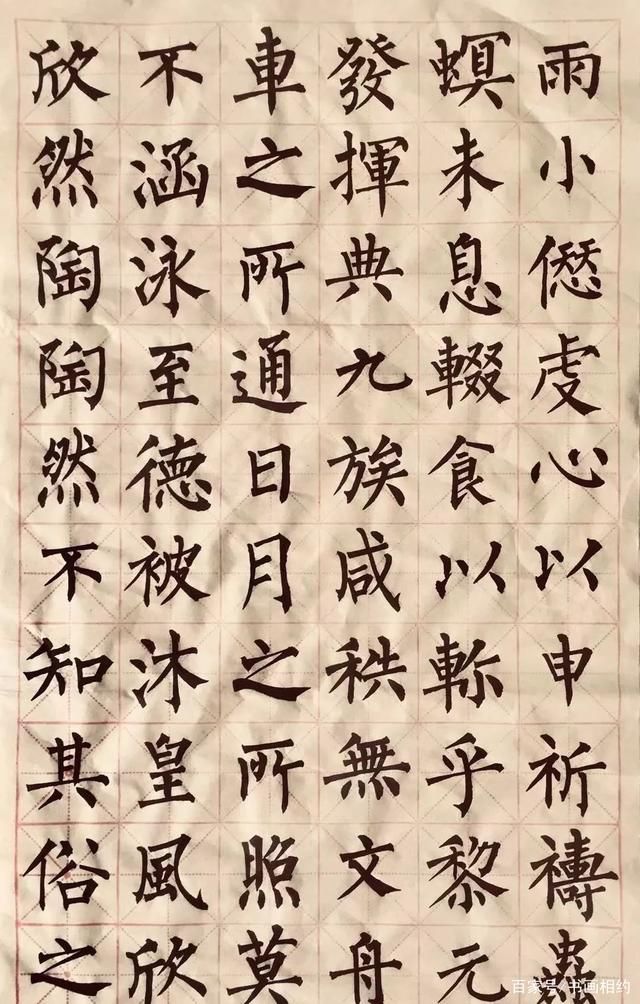 雨小愆虔心以申祈禱蟲
螟未息輟食以軫乎黎元
發揮典九族咸秩無文舟
車之所通日月之所照莫
不涵泳至德被沐皇風欣
欣然陶陶然不知其俗之
百家号/书画相约